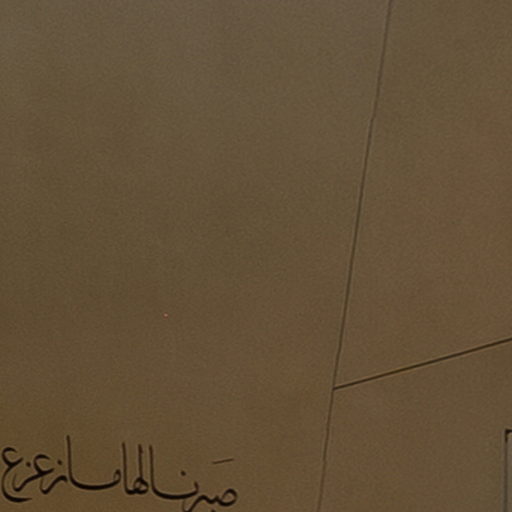 صبرنا لها ما زعزع